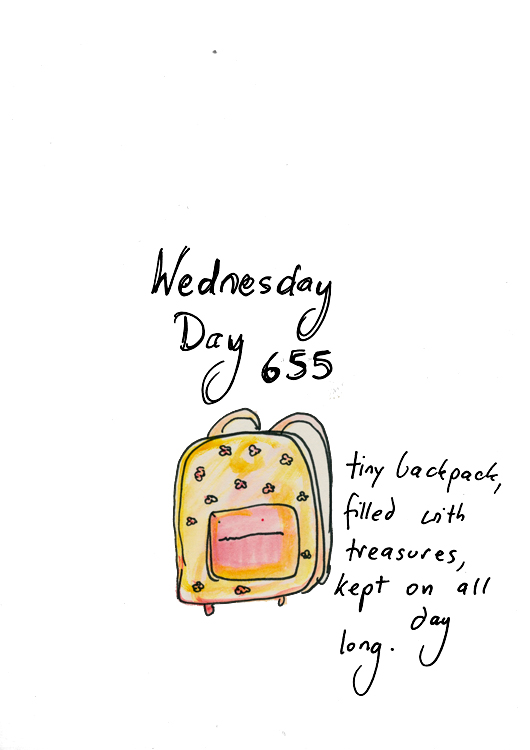 Wednesday
Day 655
tiny backpack,
filled with
treasures,
kept on all
day
long.